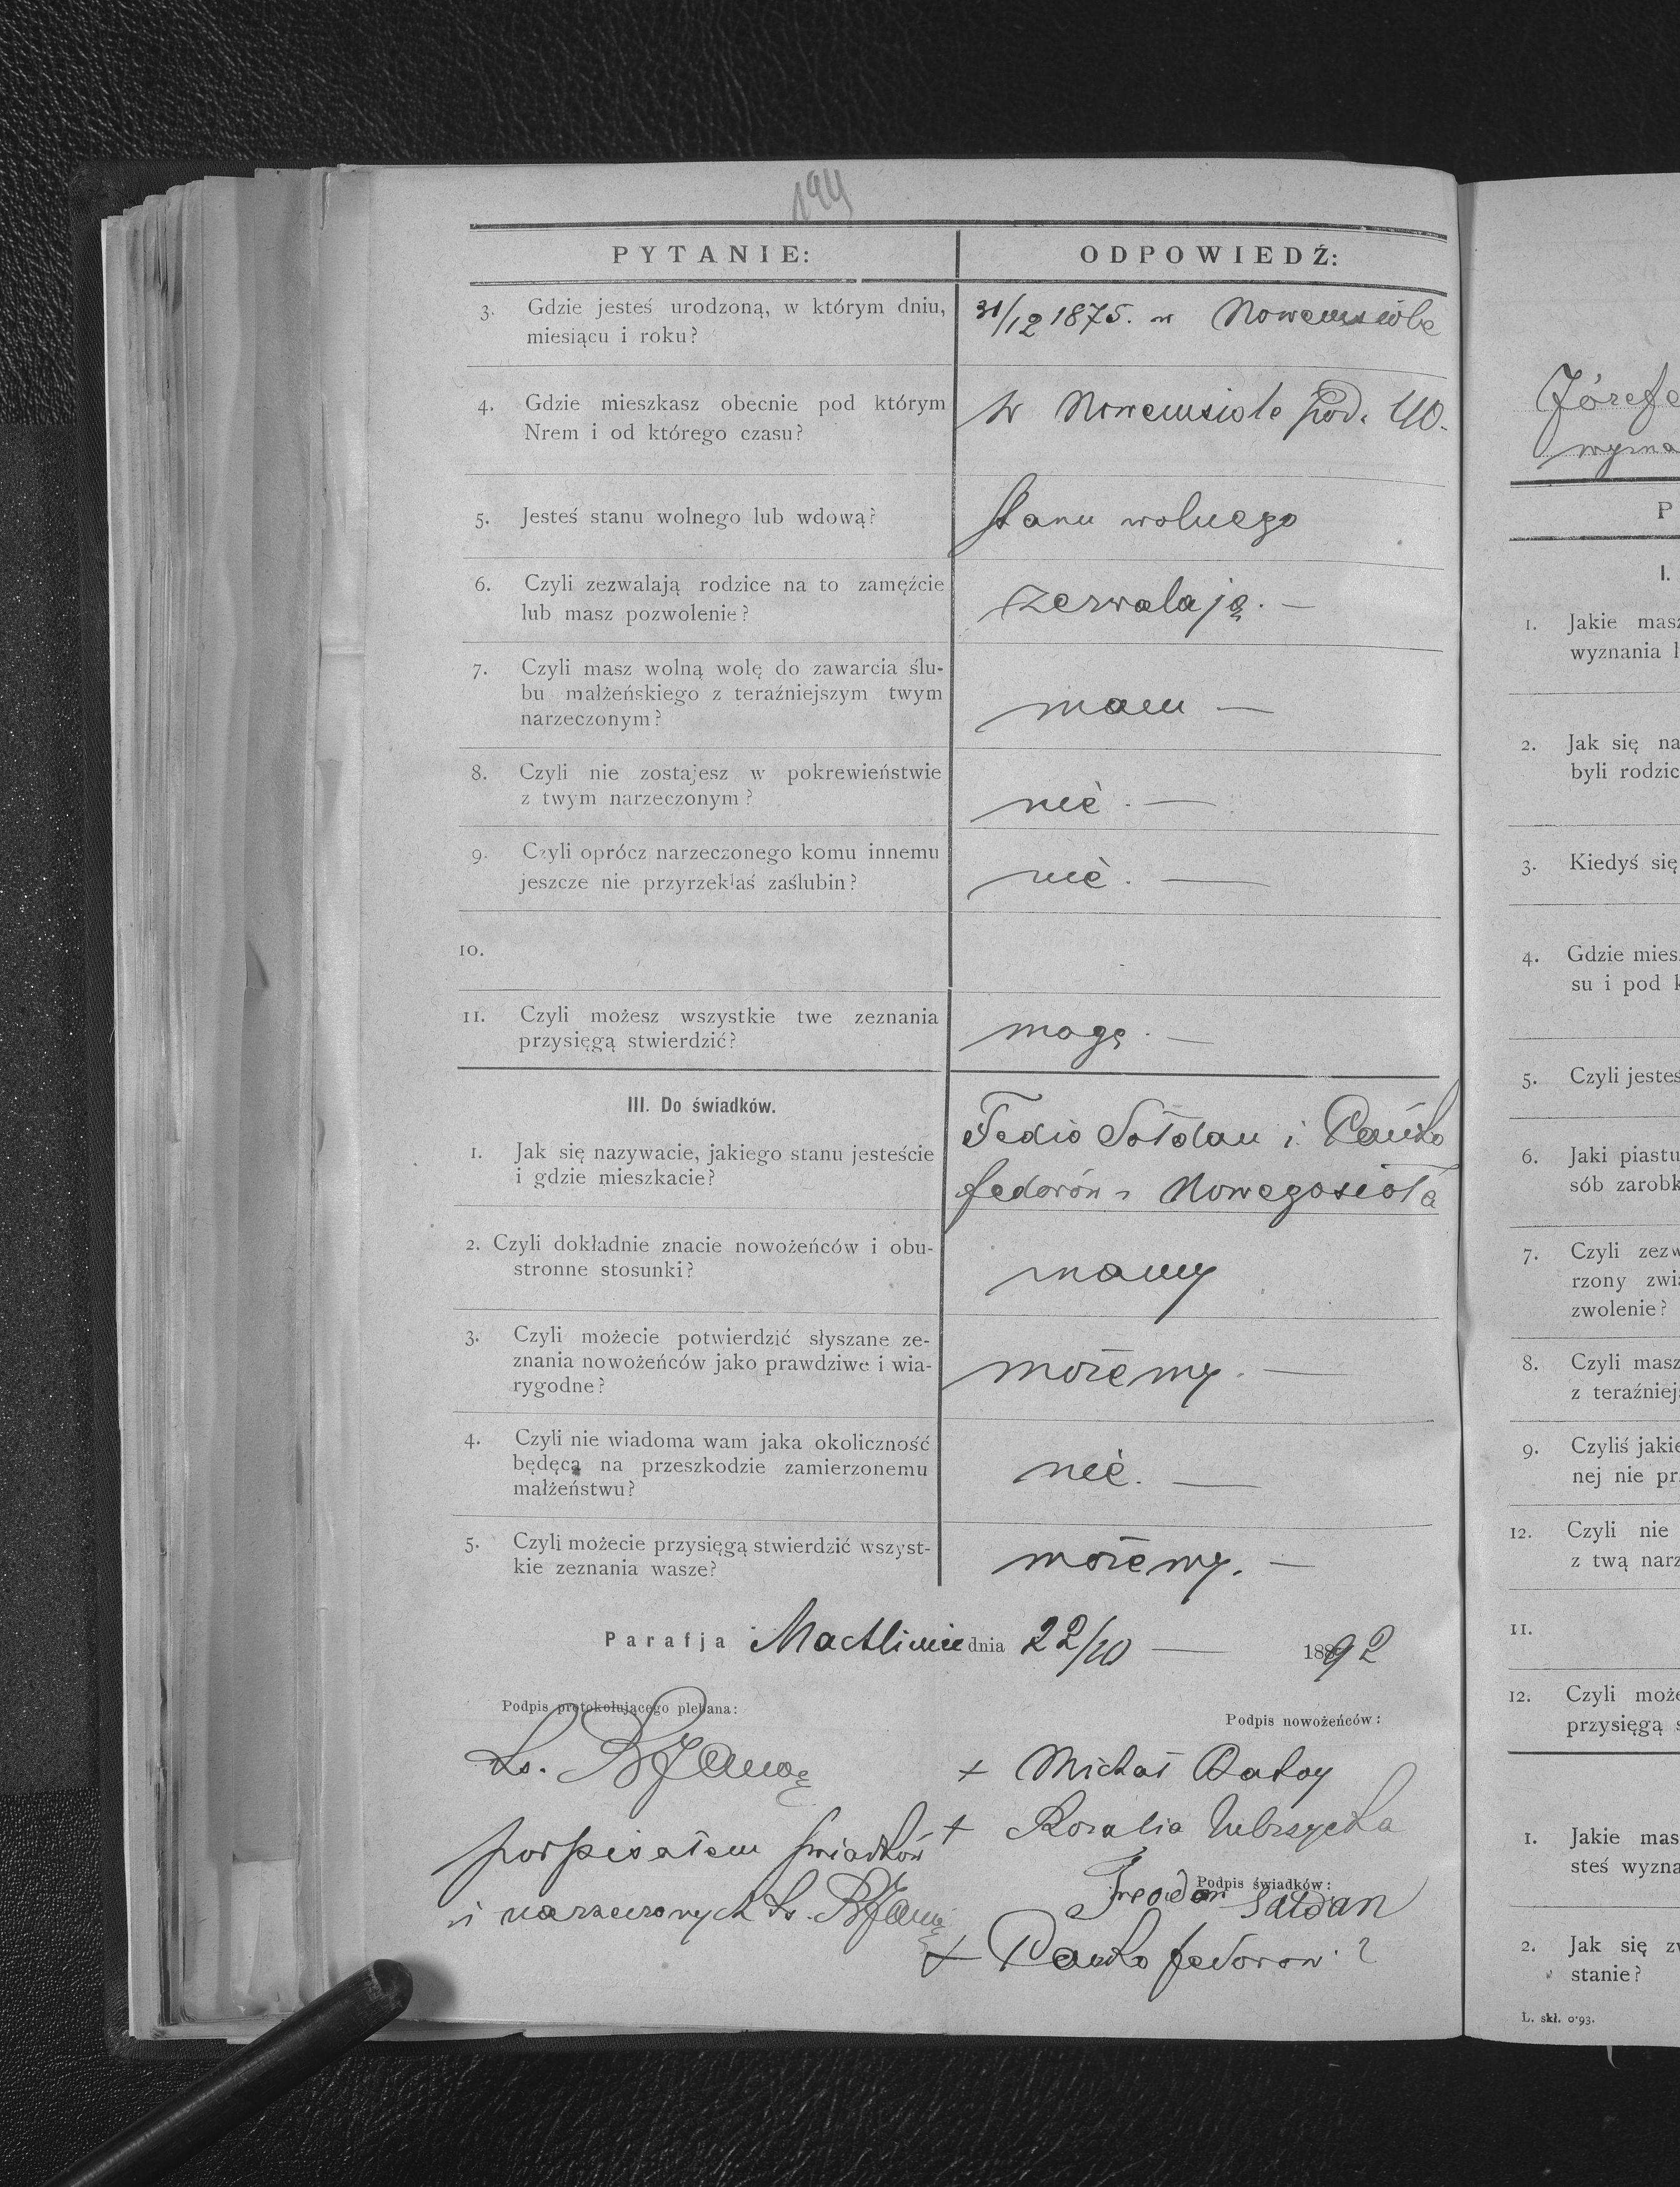 194
PYTANIE: ODPOWIEDŹ:
3. Gdzie jesteś urodzoną, w którym dniu,
miesiącu i roku?
31/12 1875. w Nowemsiole
4. Gdzie mieszkasz obecnie pod którym
Nrem i od którego czasu?
w Nowemsiole pod.
5. Jesteś stanu wolnego lub wdową?
stanu wolnego
6. Czyli zezwalają rodzice na to zamęźcie
lub masz pozwolenie?
zezwalają. —
7. Czyli masz wolną wolę do zawarcia ślu-
bu małżeńskiego z teraźniejszym twym
narzeczonym?
mam —
8. Czyli nie zostajesz w pokrewieństwie
z twym narzeczonym?
nie. —
9. Czyli oprócz narzeczonego komu innemu
jeszcze nie przyrzekłaś zaślubin?
nie. —
10.
11. Czyli możesz wszystkie twe zeznania
przysięgą stwierdzić?
mogę. —
III. Do świadków.
1. Jak się nazywacie, jakiego stanu jesteście
i gdzie mieszkacie?
Fedio Sołdan i Pańko
Fedorów z Nowegosioła
2. Czyli dokładnie znacie nowożeńców i obu-
stronne stosunki?
mamy
3. Czyli możecie potwierdzić słyszane ze-
znania nowożeńców jako prawdziwe i wia-
rygodne?
możemy. —
4. Czyli nie wiadoma wam jaka okoliczność
będęcą na przeszkodzie zamierzonemu
małżeństwu?
nie. —
5. Czyli możecie przysięgą stwierdzić wszyst-
kie zeznania wasze?
możemy. —
Parafja Machliniec dnia 22/10 — 1892
Podpis protokołującego plebana:
Podpis nowożeńców:
+ Michał
+ Rozalia
podpisałem świadków
i narzeczonych
Podpis świadków:
Teodor Sałdan
+ Pańko Fedorow
Józefe
wyzna
P
I.
1. Jakie masz
wyznania l
2. Jak się na
byli rodzic
3. Kiedyś się
4. Gdzie mies
su i pod k
5. Czyli jesteś
6. Jaki piastu
sób zarobk
7. Czyli zezw
rzony zwią
zwolenie?
8. Czyli masz
z teraźniej
9. Czyliś jakie
nej nie pr
12. Czyli nie
z twą narz
11.
12. Czyli może
przysięgą s
1. Jakie mas
steś wyzna
2. Jak się zw
stanie?
L. skł. 0·93.